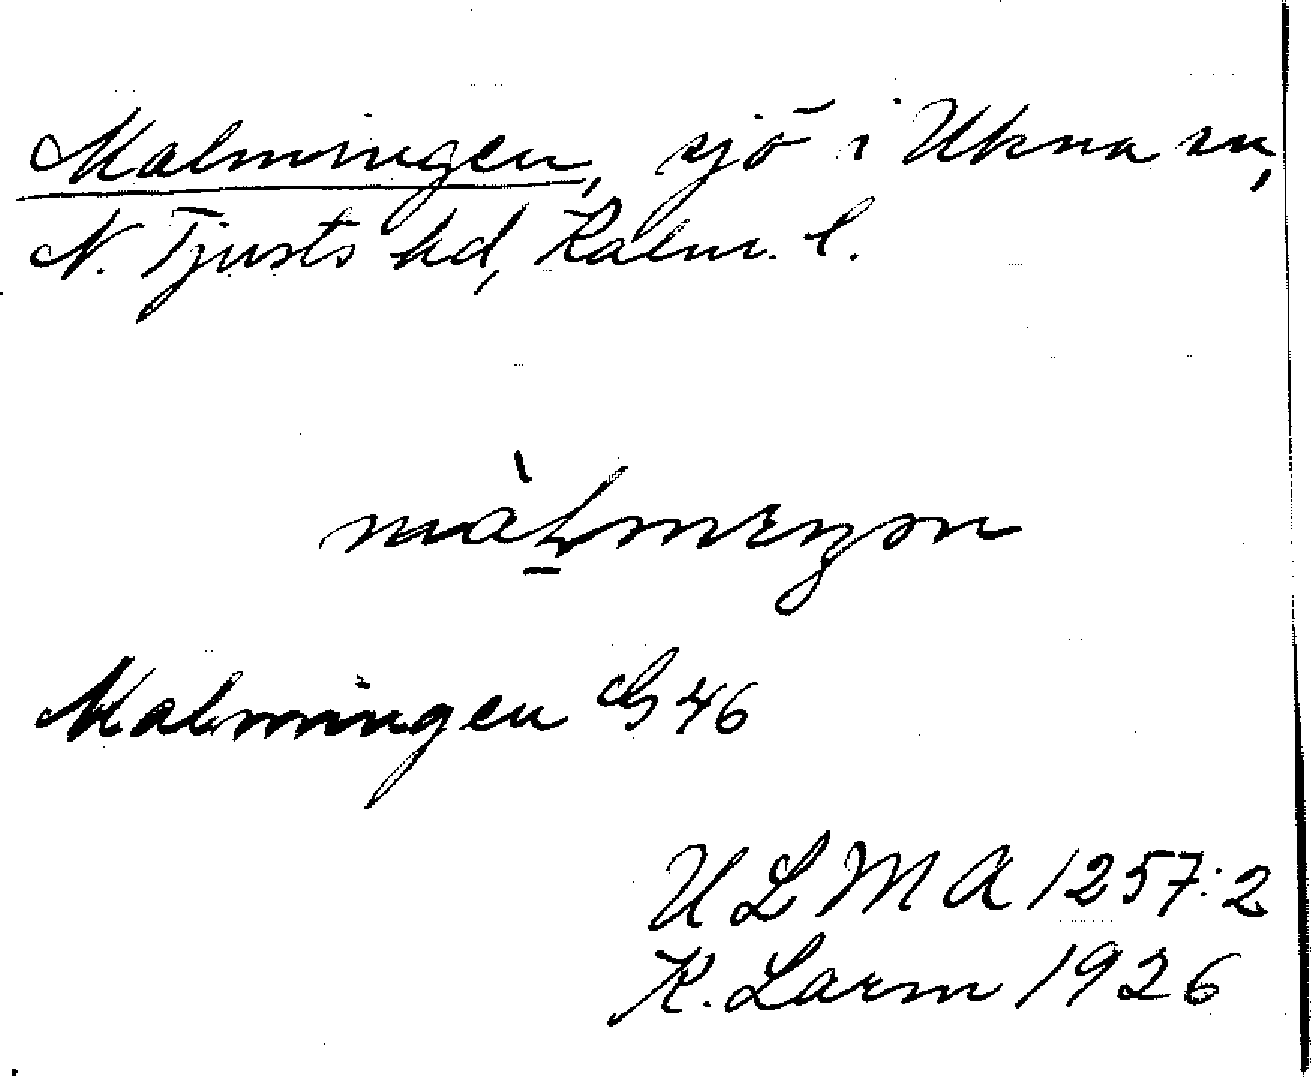 Malmingen, sjö i Ukna sn,
N. Tjusts hd, Kalm. l.
Malmingen G 46
ULMA 1257:2
K. Larm 1926